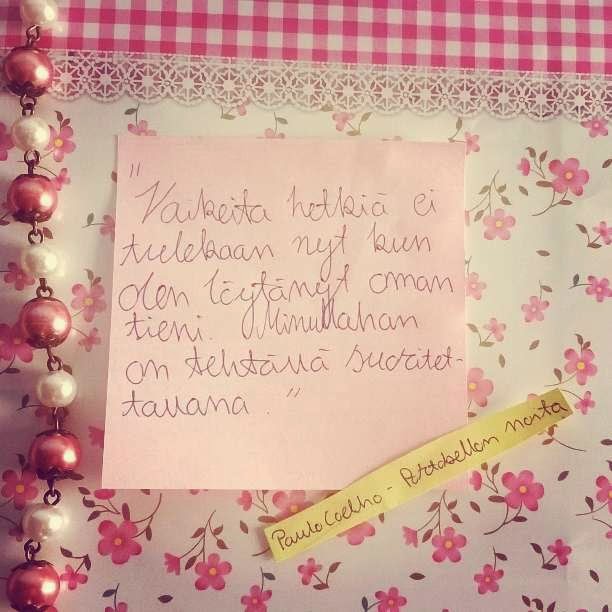 "
Vaikeita hetkiä ei
tulekaan nyt kun
olen löytänyt oman
tieni. Minullahan
on tehtävä suoritet-
tavana."
Paulo Coelho - Portobellon noita